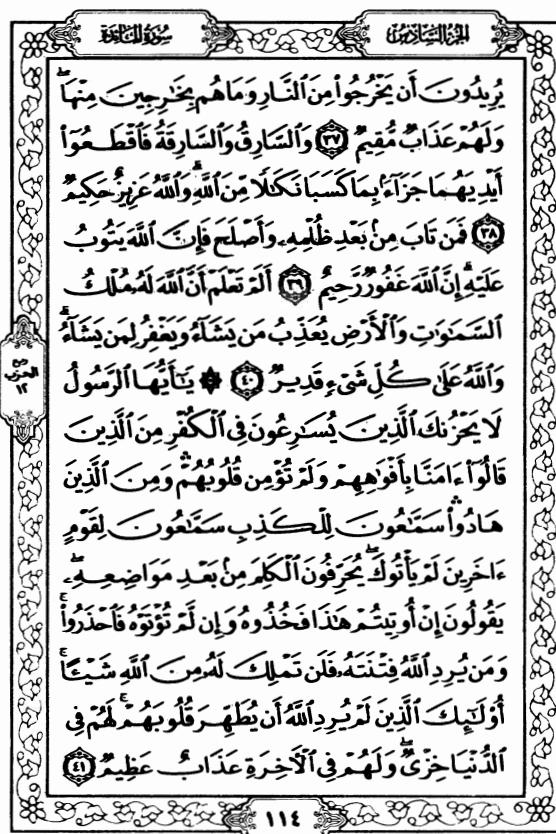 سُورَةُ المَائِدَةِ
الجُزْءُ السَّادِسُ
يُرِيدُونَ أَن يَخْرُجُوا۟ مِنَ ٱلنَّارِ وَمَا هُم بِخَٰرِجِينَ مِنْهَاۖ
وَلَهُمْ عَذَابٌ مُّقِيمٌ ٣٧ وَٱلسَّارِقُ وَٱلسَّارِقَةُ فَٱقْطَعُوٓا۟
أَيْدِيَهُمَا جَزَآءًۢ بِمَا كَسَبَا نَكَٰلًا مِّنَ ٱللَّهِۗ وَٱللَّهُ عَزِيزٌ حَكِيمٌ
٣٨ فَمَن تَابَ مِنۢ بَعْدِ ظُلْمِهِۦ وَأَصْلَحَ فَإِنَّ ٱللَّهَ يَتُوبُ
عَلَيْهِۗ إِنَّ ٱللَّهَ غَفُورٌ رَّحِيمٌ ٣٩ أَلَمْ تَعْلَمْ أَنَّ ٱللَّهَ لَهُۥ مُلْكُ
ٱلسَّمَٰوَٰتِ وَٱلْأَرْضِ يُعَذِّبُ مَن يَشَآءُ وَيَغْفِرُ لِمَن يَشَآءُۗ
وَٱللَّهُ عَلَىٰ كُلِّ شَىْءٍ قَدِيرٌ ٤٠ ۞ يَٰٓأَيُّهَا ٱلرَّسُولُ
لَا يَحْزُنكَ ٱلَّذِينَ يُسَٰرِعُونَ فِى ٱلْكُفْرِ مِنَ ٱلَّذِينَ
قَالُوٓا۟ ءَامَنَّا بِأَفْوَٰهِهِمْ وَلَمْ تُؤْمِن قُلُوبُهُمْۛ وَمِنَ ٱلَّذِينَ
هَادُوا۟ۛ سَمَّٰعُونَ لِلْكَذِبِ سَمَّٰعُونَ لِقَوْمٍ
ءَاخَرِينَ لَمْ يَأْتُوكَۖ يُحَرِّفُونَ ٱلْكَلِمَ مِنۢ بَعْدِ مَوَاضِعِهِۦۖ
يَقُولُونَ إِنْ أُوتِيتُمْ هَٰذَا فَخُذُوهُ وَإِن لَّمْ تُؤْتَوْهُ فَٱحْذَرُوا۟ۚ
وَمَن يُرِدِ ٱللَّهُ فِتْنَتَهُۥ فَلَن تَمْلِكَ لَهُۥ مِنَ ٱللَّهِ شَيْـًٔاۚ
أُو۟لَٰٓئِكَ ٱلَّذِينَ لَمْ يُرِدِ ٱللَّهُ أَن يُطَهِّرَ قُلُوبَهُمْۚ لَهُمْ فِى
ٱلدُّنْيَا خِزْىٌۖ وَلَهُمْ فِى ٱلْءَاخِرَةِ عَذَابٌ عَظِيمٌ ٤١
ربع
الحزب
١٢
١١٤